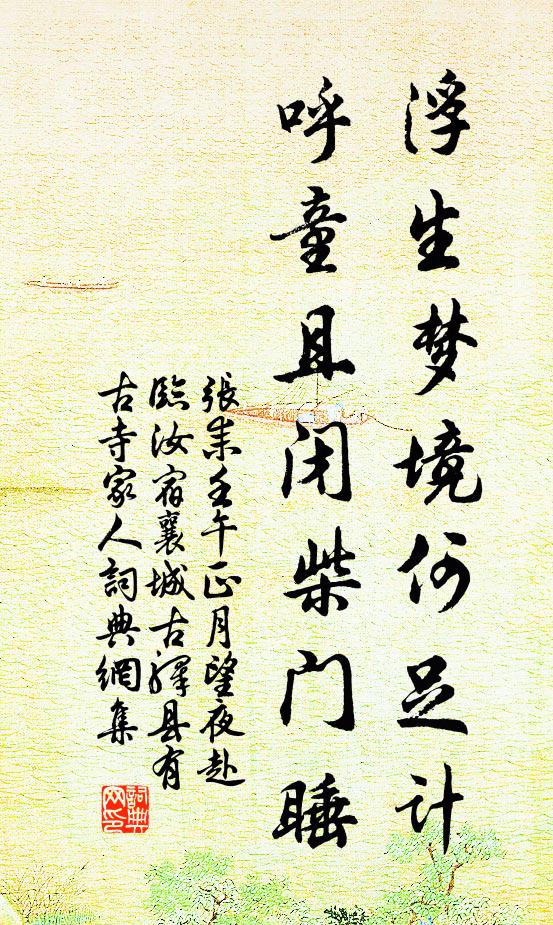 浮生梦境何足计
呼童且闭柴门睡
張耒壬午正月望夜赴
臨汝宿襄城古驿县有
古寺家人詞典網集
詞典网印